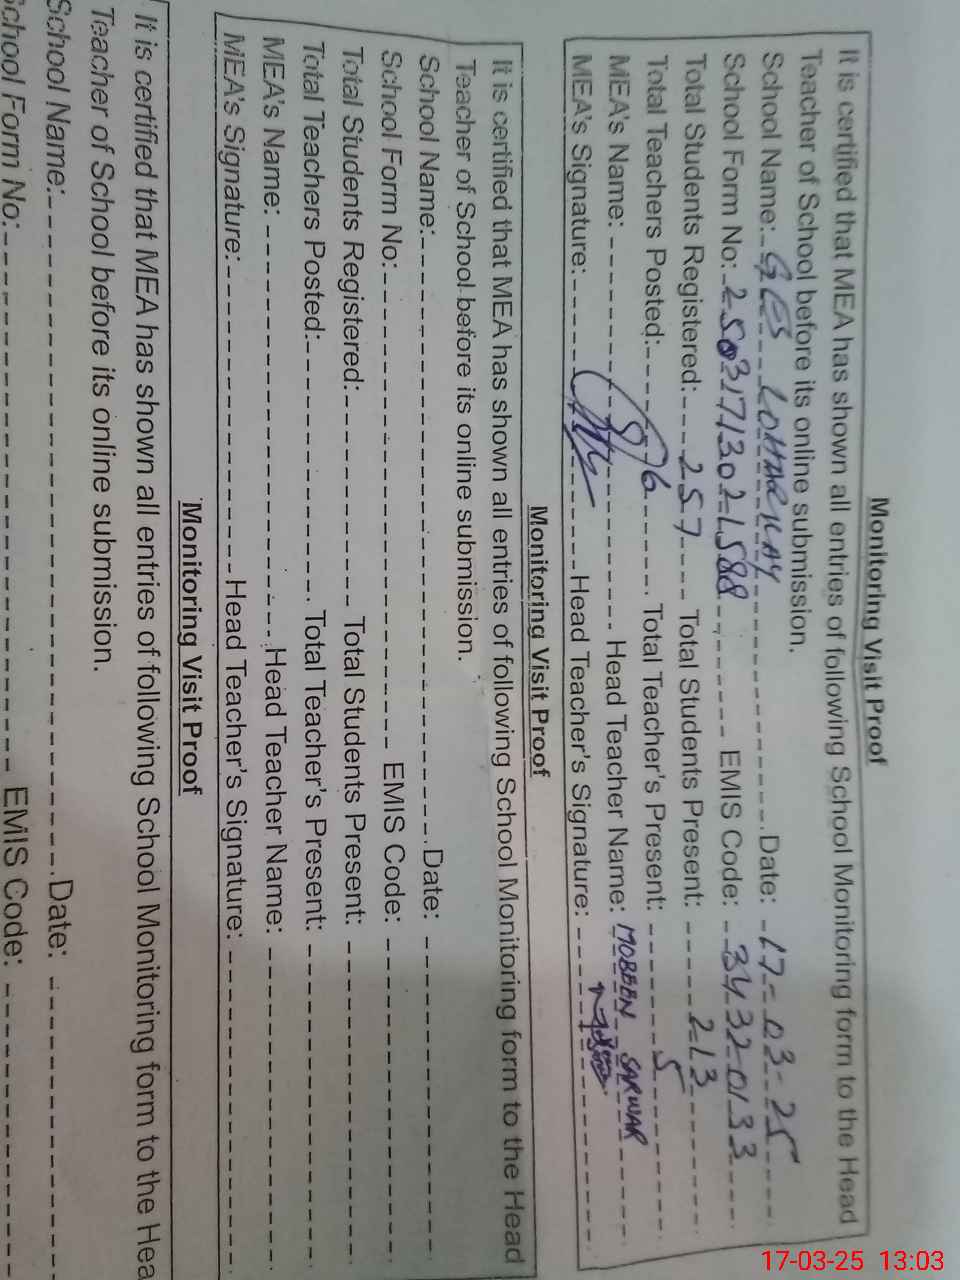 Monitoring Visit Proof
It is certified that MEA has shown all entries of following School Monitoring form to the Head
Teacher of School before its online submission.
School Name: GES LOHAR KAY Date: 17-03-25
School Form No: 25031713021588 EMIS Code: 34320133
Total Students Registered: 257 Total Students Present: 213
Total Teachers Posted: 6 Total Teacher's Present: 5
MEA's Name: Head Teacher Name: MOBEEN SARWAR
MEA's Signature: Head Teacher's Signature:
Monitoring Visit Proof
It is certified that MEA has shown all entries of following School Monitoring form to the Head
Teacher of School before its online submission.
School Name: Date:
School Form No: EMIS Code:
Total Students Registered: Total Students Present:
Total Teachers Posted: Total Teacher's Present:
MEA's Name: Head Teacher Name:
MEA's Signature: Head Teacher's Signature:
Monitoring Visit Proof
It is certified that MEA has shown all entries of following School Monitoring form to the Hea
Teacher of School before its online submission.
School Name: Date:
School Form No: EMIS Code:
17-03-25 13:03